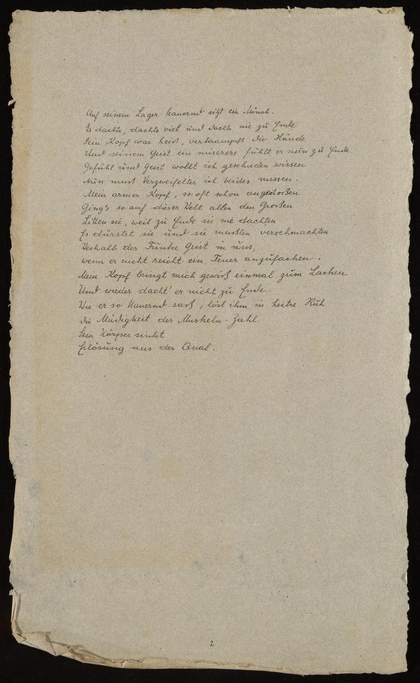 Auf seinem Lager kauernd sitzt ein Mönch.
Er dachte, dachte viel und dacht nie zu Ende
Sein Kopf war heiss, verkrampft die Hände
Und seinem Geist ein fühlt er nein zu Ende
Gefühl und Geist wollt ich geschieden wissen
Nun muss Verzweifelter ich beides missen.
Mein armer Kopf, so oft schon angestoßen
Ging's so auf dieser Welt allen den Großen
Litten sie, weil zu Ende sie nie dachten
Es dürstet sie und sie mussten verschmachten
Deshalb der Funke Geist in uns,
wenn er nicht reicht ein Feuer anzufachen.
Mein Kopf bringt mich gewiß einmal zum Lachen
Und wieder dacht' er nicht zu Ende.
Wie er so kauernd sass, löst ihm in heitre Ruh
die Müdigkeit der Muskeln-Zahl
Sein Körper sinkt
Erlösung aus der Qual.
2